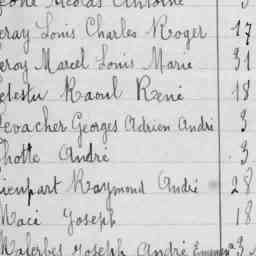 Nicolas Antoine
eray Louis Charles Roger 17
eroy Marcel Louis Marie 31
Raoul René 18
evacher Georges Adrien André 3
hotte André 3
ienpart Raymond André 28
Macé Joseph 18
Malerbes Joseph André 3